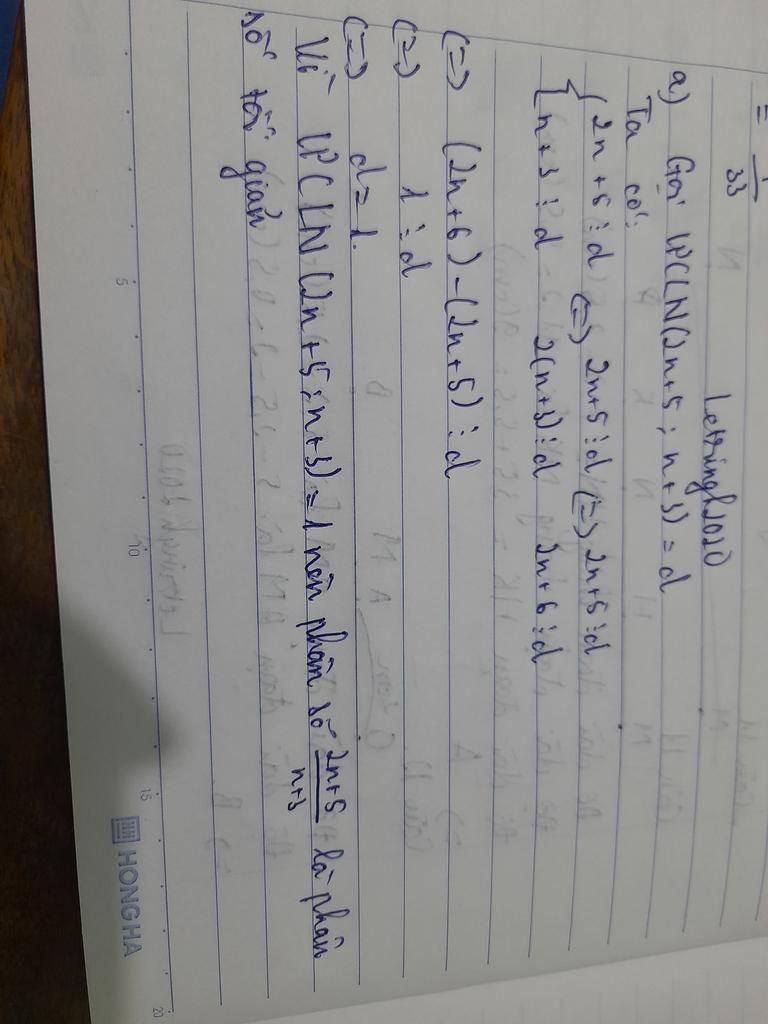 = 1/33
Letringh2010
a) Gọi ƯCLN(2n+5; n+3) = d
Ta có:
{ 2n+5 ⋮ d (=) 2n+5 ⋮ d (=) 2n+5 ⋮ d
{ n+3 ⋮ d 2(n+3) ⋮ d 2n+6 ⋮ d
(=) (2n+6) - (2n+5) ⋮ d
(=) 1 ⋮ d
(=) d = 1.
Vì ƯCLN (2n+5; n+3) = 1 nên phân số 2n+5/n+3 là phân
số tối giản
5 10 15 20
HONGHA